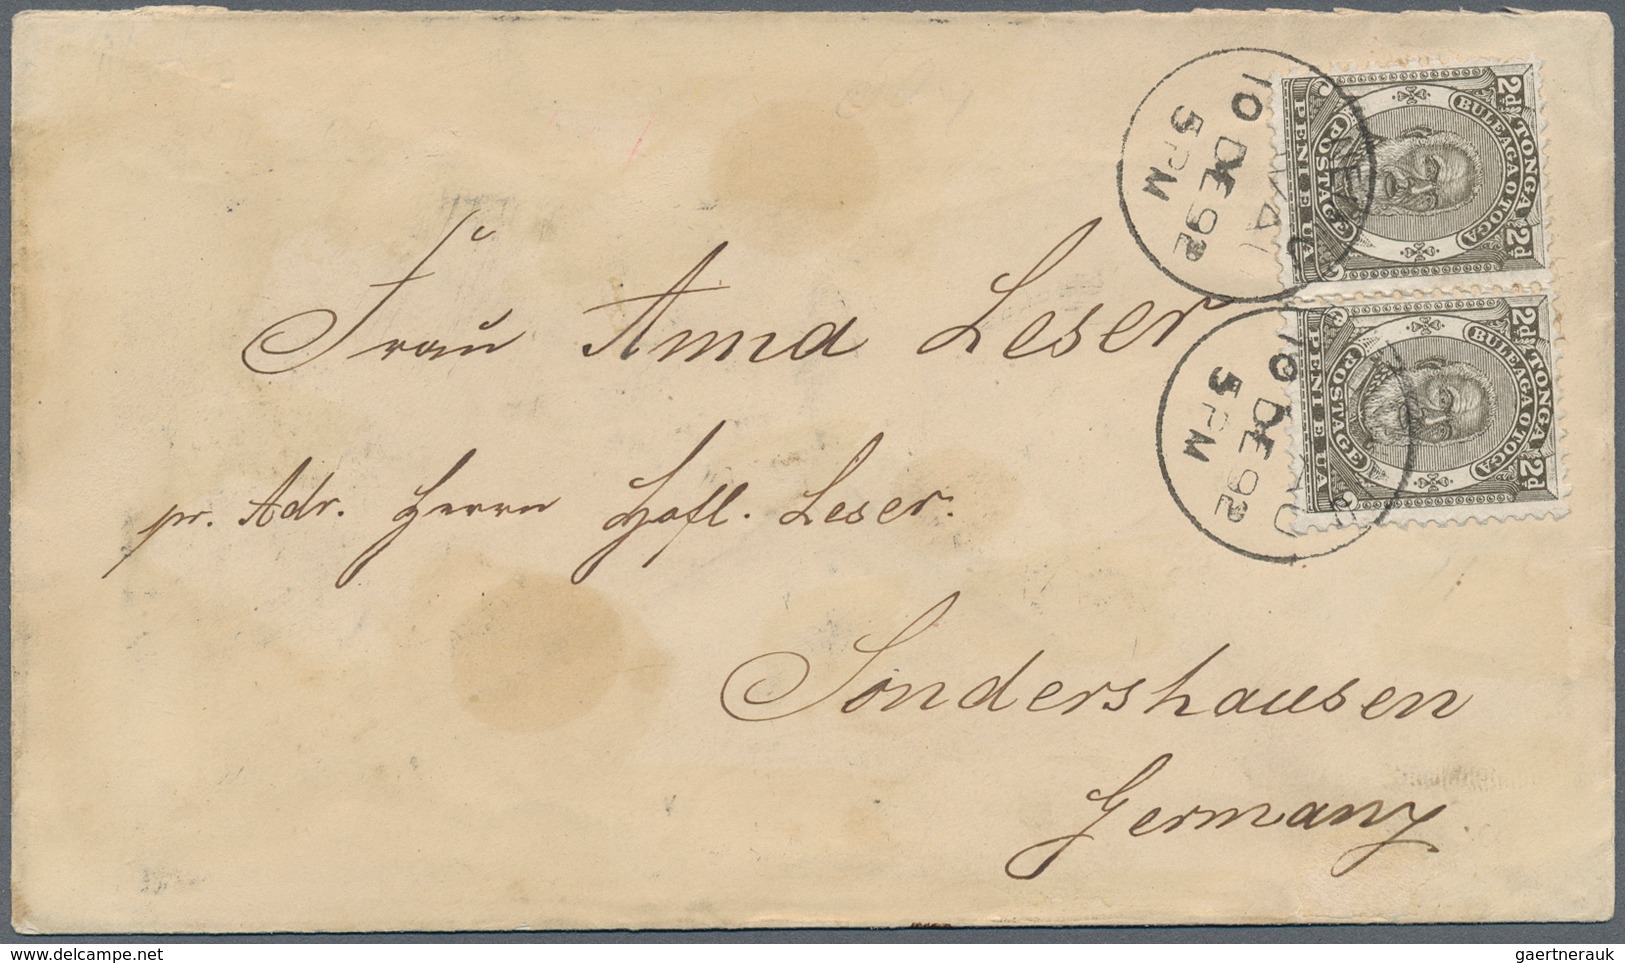 Frau Anna Leser
pr. Adr. Herrn Hofl. Leser.
Sondershausen
Germany
2d TONGA 2d
BULEAGA O TOGA
POSTAGE
PENI E UA
10 DE 92
5 PM
2d TONGA 2d
BULEAGA O TOGA
POSTAGE
PENI E UA
10 DE 92
5 PM
www.delcampe.net
gaertnerauk